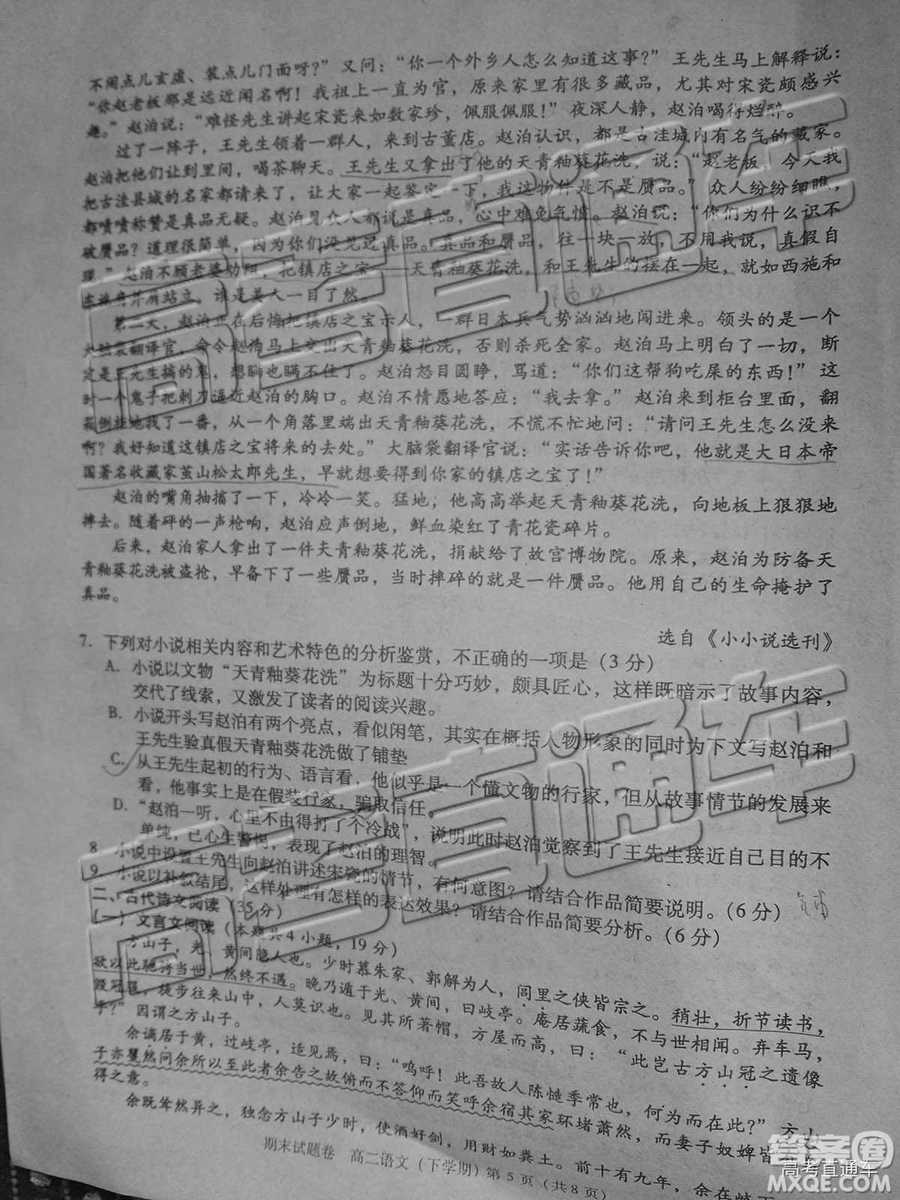 不闹点儿玄虚、装点儿门面呀?”又问:“你一个外乡人怎么知道这事?”王先生马上解释说:
“你赵老板那是远近闻名啊!我祖上一直为官,原来家里有很多藏品,尤其对宋瓷颇感兴
趣。”赵泊说:“难怪先生讲起宋瓷来如数家珍,佩服佩服!”夜深人静,赵泊喝得烂醉。
过了一阵子,王先生领着一群人,来到古董店。赵泊认识,都是古洼城内有名气的藏家。
赵泊把他们让到里间,喝茶聊天。王先生又拿出了他的天青釉葵花洗,说:“赵老板,今天我
把古洼县城的名家都请来了,让大家一起鉴定一下,我这物件是不是赝品。”众人纷纷细瞧,
都啧啧称赞是真品无疑。赵泊见众人都说是真品,心中难免气愤。赵泊说:“你们为什么识不
破赝品?道理很简单,因为你们没见过真品。真品和赝品,往一块一放,不用我说,真假自
现。”赵泊不顾老婆劝阻,把镇店之宝——天青釉葵花洗,和王先生的摆在一起,就如西施和
东施肩并肩站立,谁是美人一目了然。
第二天,赵泊正在后悔把镇店之宝示人,一群日本兵气势汹汹地闯进来。领头的是一个
大脑袋翻译官,命令赵泊马上交出天青釉葵花洗,否则杀死全家。赵泊马上明白了一切,断
定是王先生搞的鬼,想瞒也瞒不住了。赵泊怒目圆睁,骂道:“你们这帮狗吃屎的东西!”这
时一个鬼子把刺刀逼近赵泊的胸口。赵泊不情愿地答应:“我去拿。”赵泊来到柜台里面,翻
箱倒柜地找了一番,从一个角落里端出天青釉葵花洗,不慌不忙地问:“请问王先生怎么没来
啊?我好知道这镇店之宝将来的去处。”大脑袋翻译官说:“实话告诉你吧,他就是大日本帝
国著名收藏家茧山松太郎先生,早就想要得到你家的镇店之宝了!”
赵泊的嘴角抽搐了一下,冷冷一笑。猛地,他高高举起天青釉葵花洗,向地板上狠狠地
摔去。随着砰的一声枪响,赵泊应声倒地,鲜血染红了青花瓷碎片。
后来,赵泊家人拿出了一件天青釉葵花洗,捐献给了故宫博物院。原来,赵泊为防备天
青釉葵花洗被盗抢,早备下了一些赝品,当时摔碎的就是一件赝品。他用自己的生命掩护了
真品。
选自《小小说选刊》
7. 下列对小说相关内容和艺术特色的分析鉴赏,不正确的一项是(3分)
A. 小说以文物“天青釉葵花洗”为标题十分巧妙,颇具匠心,这样既暗示了故事内容,
交代了线索,又激发了读者的阅读兴趣。
B. 小说开头写赵泊有两个亮点,看似闲笔,其实在概括人物形象的同时为下文写赵泊和
王先生验真假天青釉葵花洗做了铺垫
C. 从王先生起初的行为、语言看,他似乎是一个懂文物的行家,但从故事情节的发展来
看,他事实上是在假装行家,骗取信任。
D. “赵泊一听,心里不由得打了个冷战”,说明此时赵泊觉察到了王先生接近自己目的不
单纯,已心生警惕,表现了赵泊的理智。
8. 小说中设置王先生向赵泊讲述宋瓷的情节,有何意图?请结合作品简要说明。(6分)
9. 小说以补叙结尾,这样处理有怎样的表达效果?请结合作品简要分析。(6分)
二、古代诗文阅读(35分)
(一)文言文阅读(本题共4小题,19分)
方山子,光、黄间隐人也。少时慕朱家、郭解为人,闾里之侠皆宗之。稍壮,折节读书,
欲以此驰骋当世,然终不遇。晚乃遁于光、黄间,曰岐亭。庵居蔬食,不与世相闻。弃车马,
毁冠冕,徒步往来山中,人莫识也。见其所著帽,方屋而高,曰:“此岂古方山冠之遗像
乎?”因谓之方山子。
余谪居于黄,过岐亭,适见焉,曰:“呜呼!此吾故人陈慥季常也,何为而在此?”方山
子亦矍然问余所以至此者余告之故俯而不答仰而笑呼余宿其家环堵萧然,而妻子奴婢皆有自
得之意。
余既耸然异之,独念方山子少时,使酒好剑,用财如粪土。前十有九年,余在岐下,
期末试题卷 高二语文(下学期)第5页(共8页)
高考直通车
答案圈
高考直通车
MXQE.COM